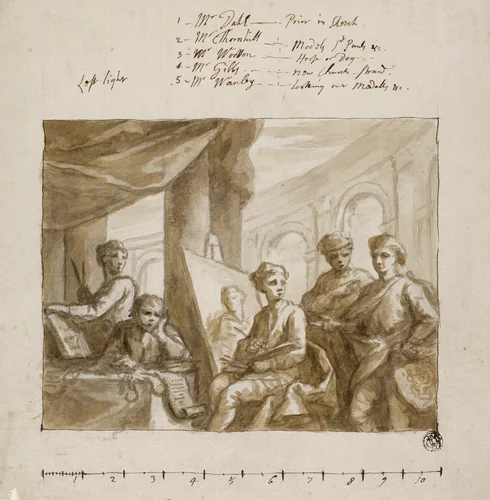 1 - Mr Dahl — Prior in Sketch
2 - Mr Thornhill — Models St Pauls &c.
3 - Mr Wotton — Horse or Dog -
4 - Mr Gibbs — new Church Strand.
Left light 5 - Mr Wanley — looking over Medalls &c.
1 2 3 4 5 6 7 8 9 10